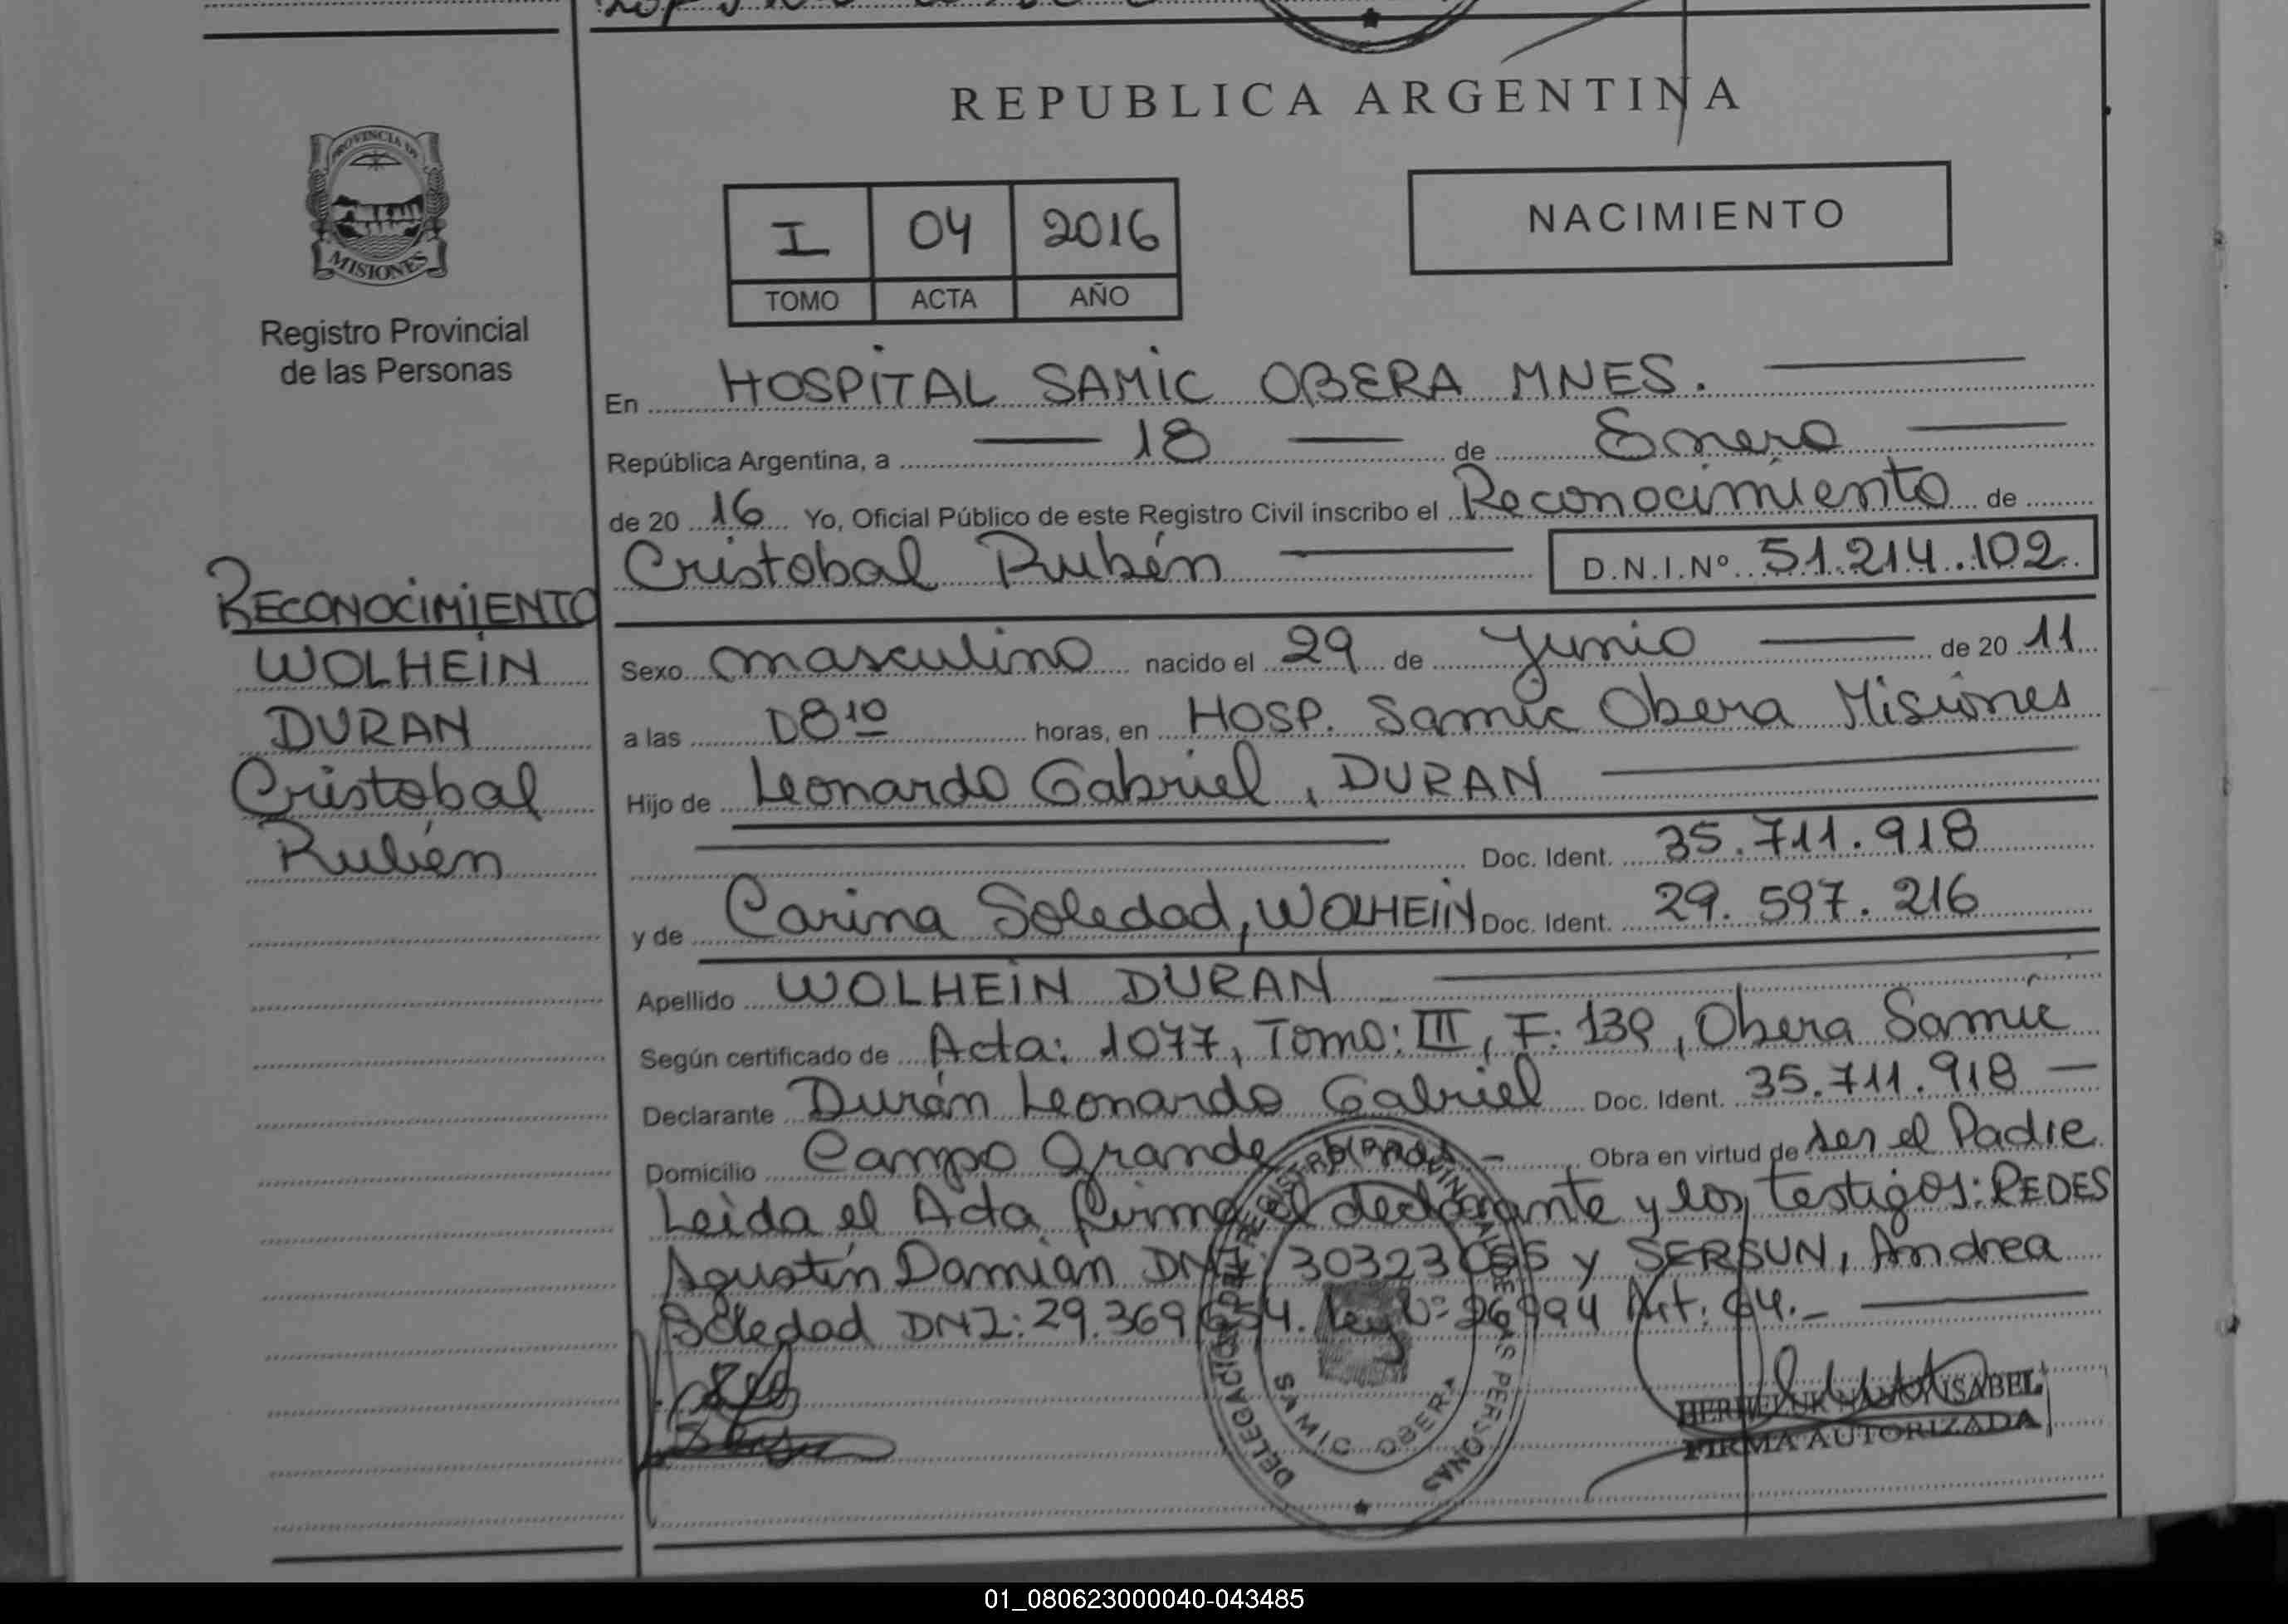 REPUBLICA ARGENTINA
PROVINCIA DE
MISIONES
Registro Provincial
de las Personas
I 04 2016
TOMO ACTA AÑO
NACIMIENTO
En HOSPITAL SAMIC OBERA MNES.
República Argentina, a 18 de Enero
de 2016 Yo, Oficial Público de este Registro Civil inscribo el Reconocimiento de
Cristobal Rubén D.N.I.Nº 51.214.102
RECONOCIMIENTO
WOLHEIN
DURAN
Cristobal
Rubén
Sexo masculino nacido el 29 de Junio de 2011
a las 08 10 horas, en HOSP. Samic Obera Misiones
Hijo de Leonardo Gabriel, DURAN
Doc. Ident. 35.711.918
y de Carina Soledad, WOLHEIN Doc. Ident. 29.597.216
Apellido WOLHEIN DURAN
Según certificado de Acta: 1077, Tomo: III, F: 139, Obera Samic
Declarante Durán Leonardo Gabriel Doc. Ident. 35.711.918
Domicilio Campo Grande Obra en virtud de ser el Padre
Leida el Acta firma el declarante y los testigos: REDES
Agustín Damian DNI: 30323055 y SERSUN, Andrea
Soledad DNI: 29.369654. Ley Nº 26994 Art: 64.
DELEGACION DEL REGISTRO PROVINCIAL DE LAS PERSONAS
SAMIC OBERA
ISABEL
FIRMA AUTORIZADA
01_080623000040-043485